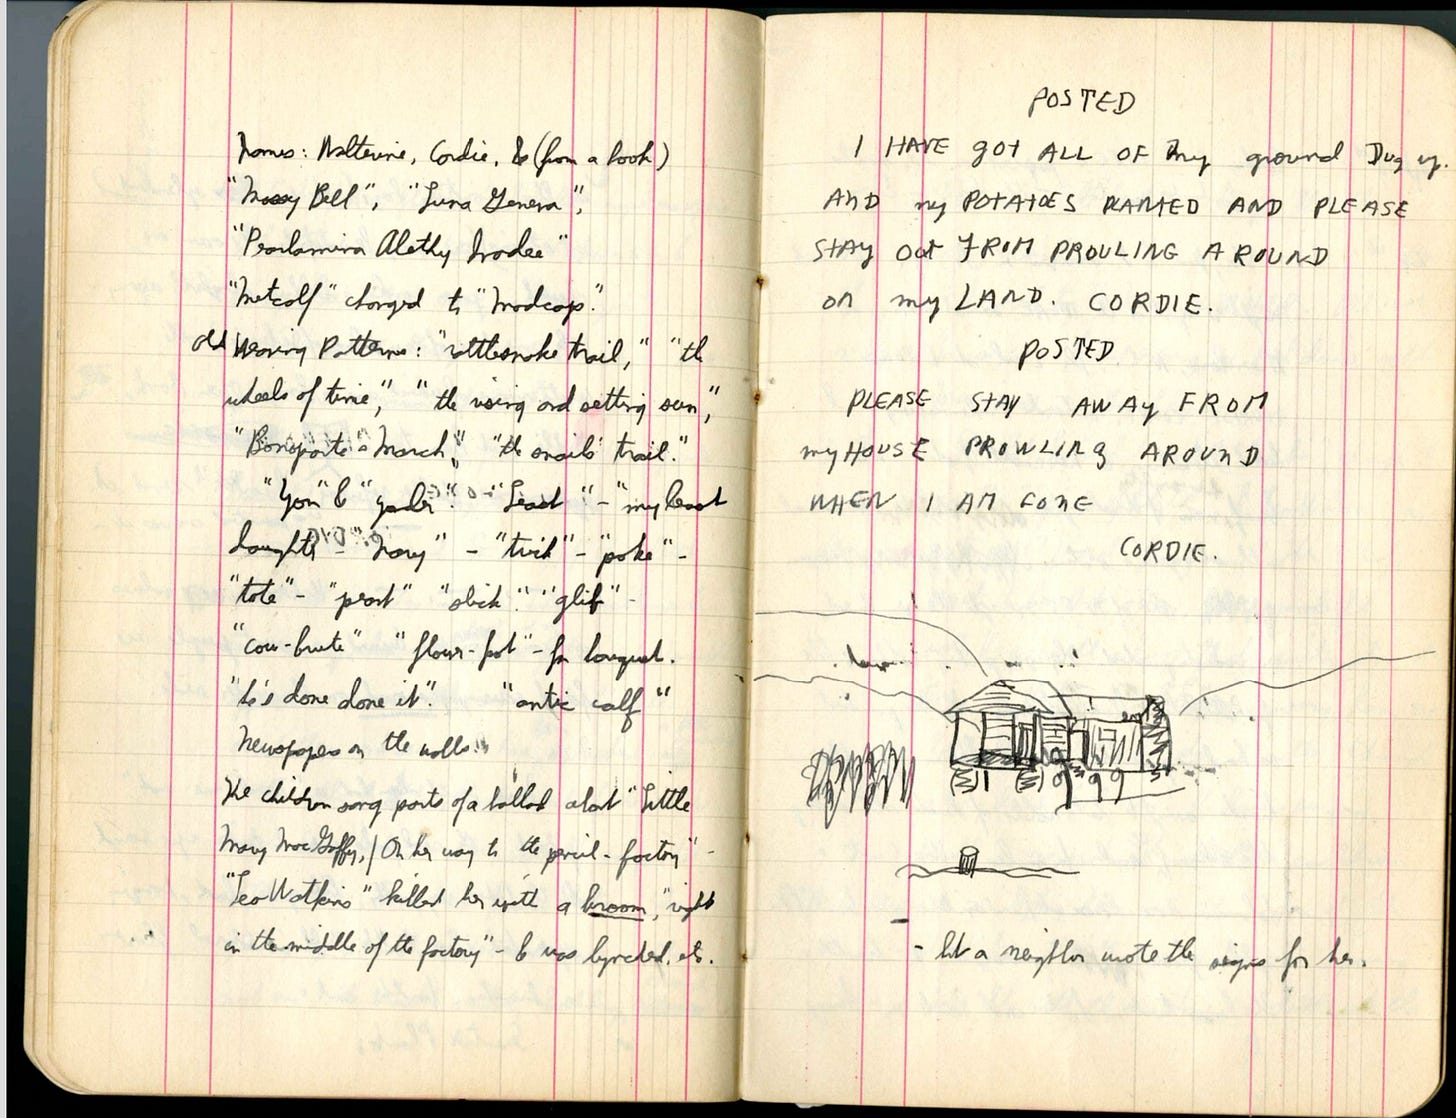 Names: Walterine, Cordie, & (from a book)
"Mossy Bell", "Luna Geneva",
"Pearlamina Alethy Ivadee"
"Metcalf" changed to "Madcap".
old Weaving Patterns: "rattlesnake trail," "the
wheels of time", "the rising and setting sun",
"Bonaparte's March", "the snails' trail."
"You" & "yonder". "Least" - "my least
daughter - "nary" - "twit" - "poke" -
"tote" - "peart" "slick" "glib" -
"cow-brute" "flower-pot" - for bouquet.
"He's done done it". "antic calf"
Newspapers on the walls
The children sang parts of a ballad about "Little
Mary MacGaffy, / On her way to the pencil-factory" -
"Leo Watkins" killed her with a broom, "right
in the middle of the factory" - & was lynched, etc.
POSTED
I HAVE got ALL OF my ground Dug up.
AND my POTATOES PLANTED AND PLEASE
STAY Out FROM PROULING AROUND
on my LAND. CORDIE.
POSTED
PLEASE STAY AWAY FROM
my HOUSE PROWLING AROUND
WHEN I AM GONE
CORDIE.
- but a neighbor wrote the signs for her.